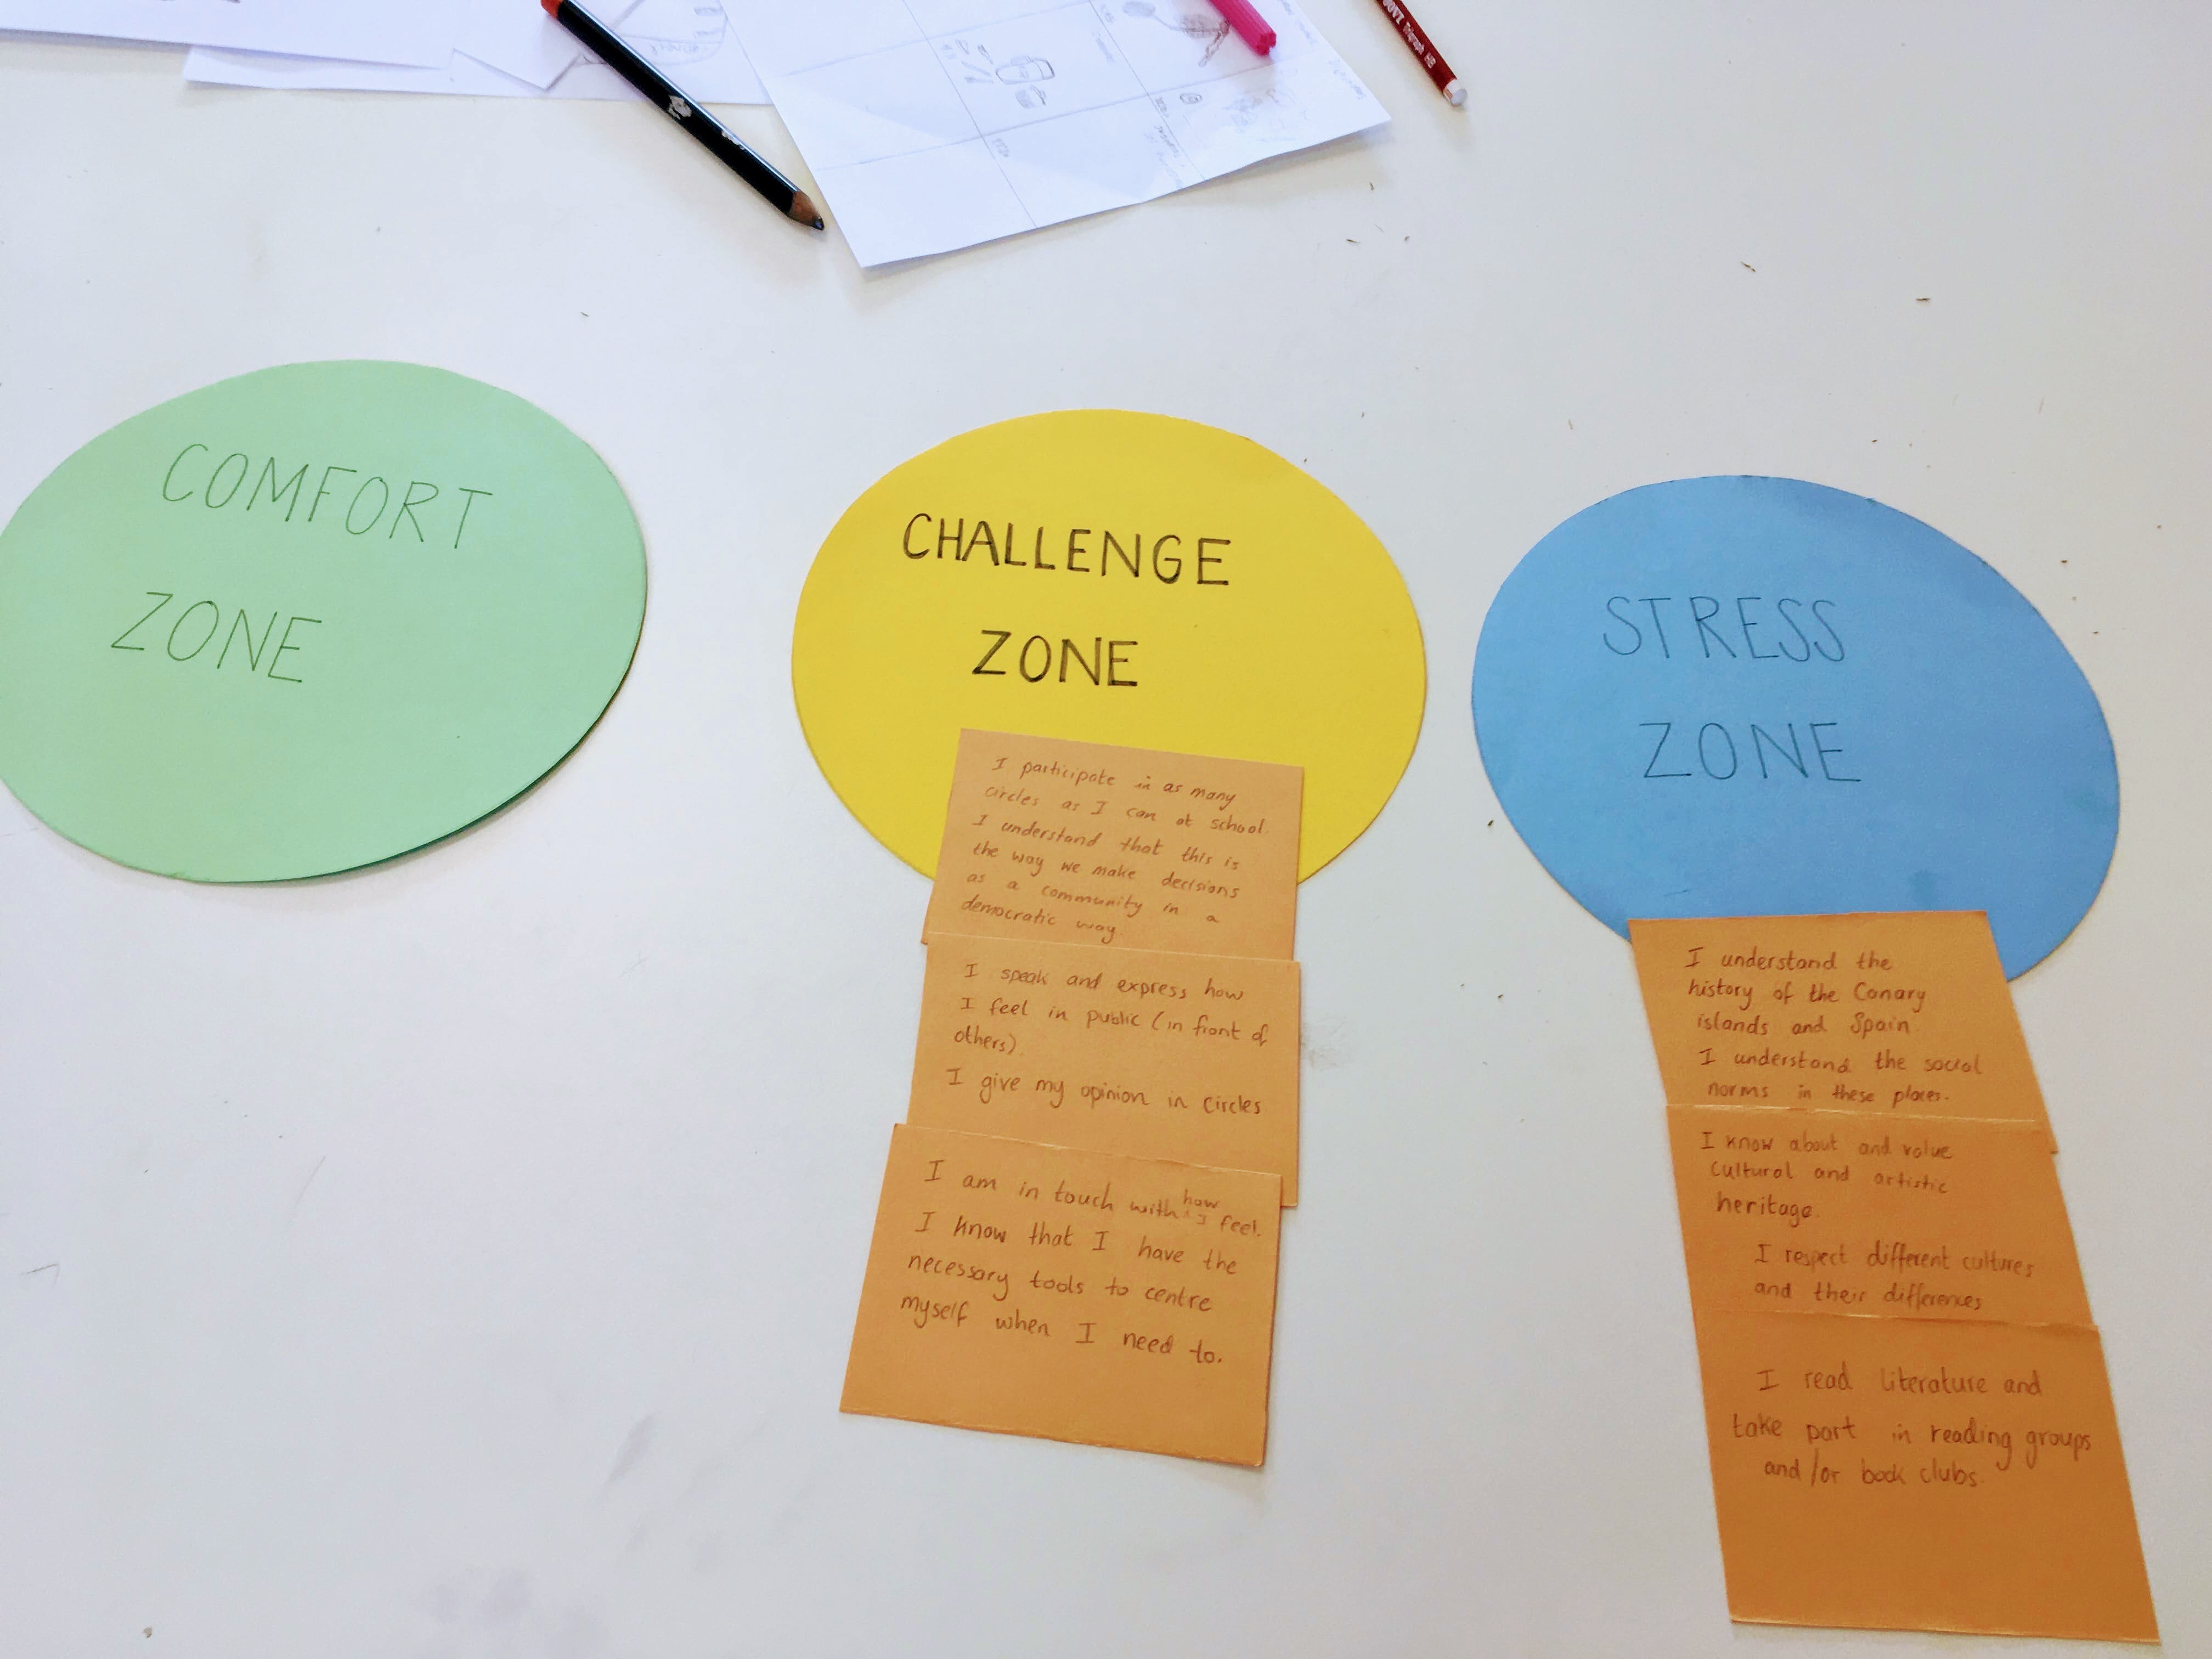 COMFORT
ZONE
CHALLENGE
ZONE
I participate in as many
circles as I can at school.
I understand that this is
the way we make decisions
as a community in a
democratic way.
I speak and express how
I feel in public (in front of
others).
I give my opinion in circles
I am in touch with how I feel.
I know that I have the
necessary tools to centre
myself when I need to.
STRESS
ZONE
I understand the
history of the Canary
islands and Spain.
I understand the social
norms in these places.
I know about and value
cultural and artistic
heritage.
I respect different cultures
and their differences
I read literature and
take part in reading groups
and/or book clubs.
HB